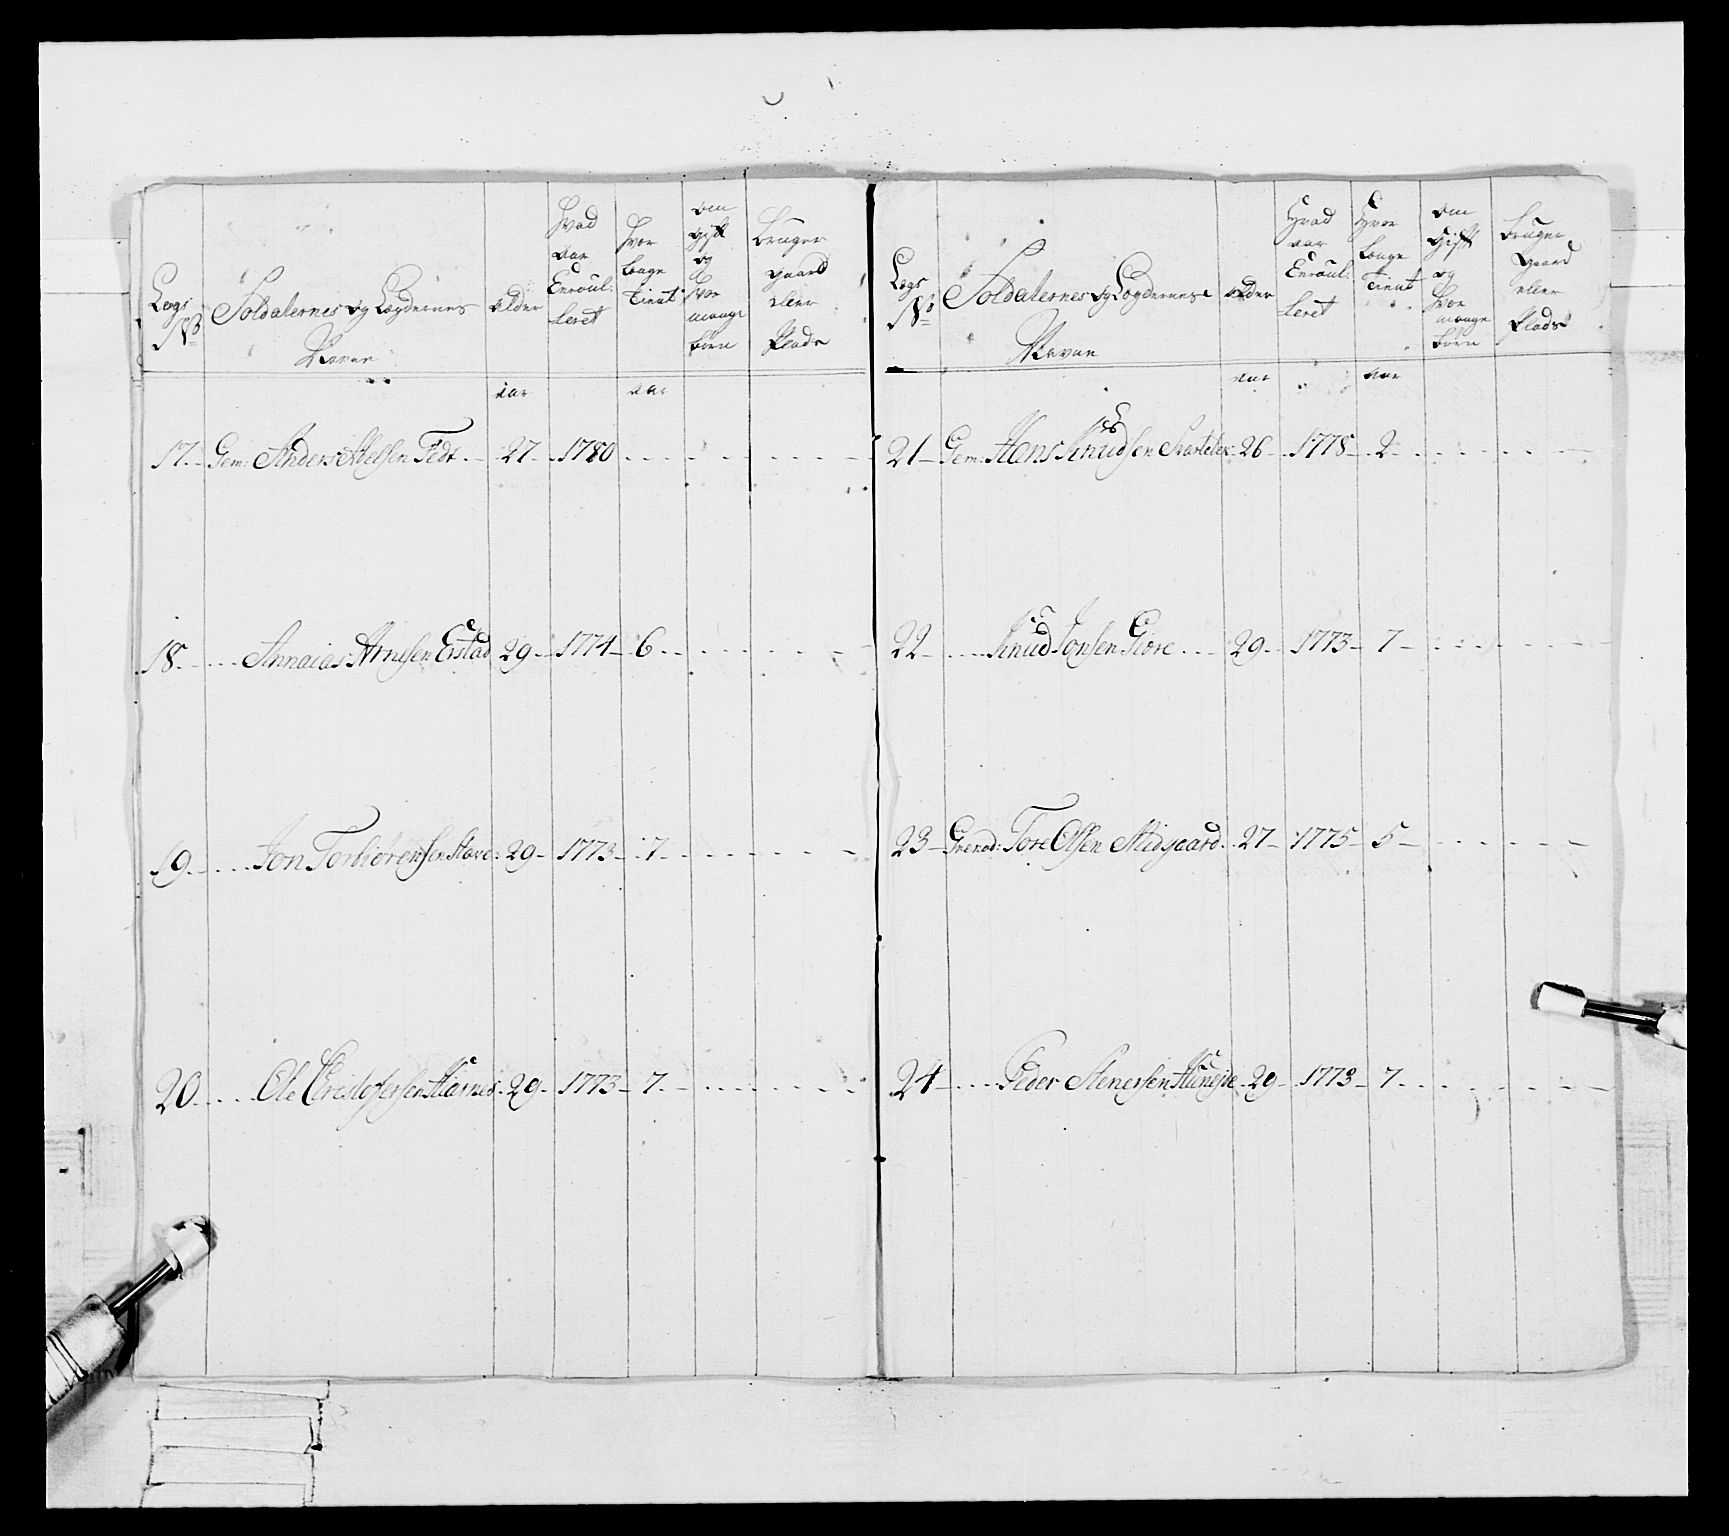 Legs No
Soldaternes og Legdernes Navne
alder
hvad aar Enroul: leret
hvor lenge tient
om gift og hvor mange børn
bruger gaard eller Plads
aar
aar
17. Gem: Anders Nelsen Fedt. 27. 1780
18. Annaias Arnesen Erstad 29 1774 6.
19. Jon Torbiørensen 29 1773 7
20. Ole Christofersen 29 1773 7
Legs No
Soldaternes og Legdernes Navne
alder
Hvad aar Enroul: leret
Hvor lenge tient
om Gift og hvor mange børn
bruger Gaard eller Plads
aar
aar
21 Gem: Hans Knudsen 26 1778 2
22 Knud Jonsen Giøre 29 1773 7
23 Grenad: Tore Olsen Midgaard. 27 1775 5
24 Peder Stenersen 29 1773 7